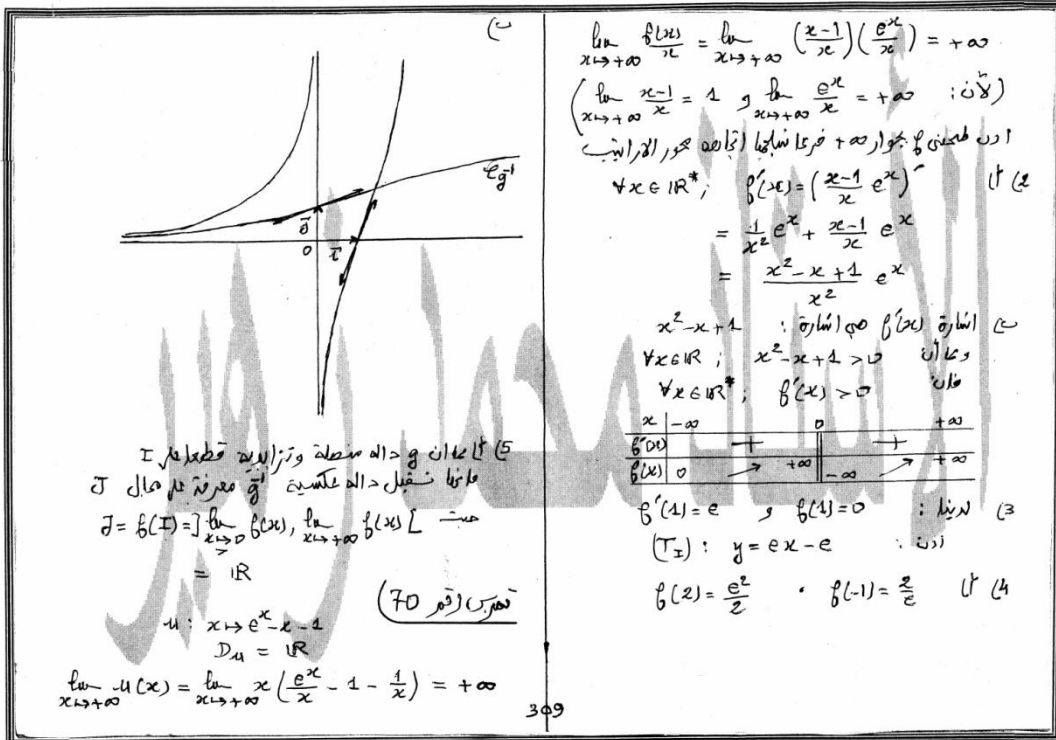 lim x↦+∞ f(x)/x = lim x↦+∞ (x-1/x)(e^x/x) = +∞
(لأن: lim x↦+∞ x-1/x = 1 و lim x↦+∞ e^x/x = +∞)
اذن لمنحنى f بجوار +∞ فرعا شلجميا اتجاهه محور الاراتيب
2) أ) ∀x∈ℝ*; f'(x) = (x-1/x e^x)'
= 1/x² e^x + x-1/x e^x
= x²-x+1/x² e^x
ب) اشارة f'(x) هي اشارة: x²-x+1
وبما أن ∀x∈ℝ; x²-x+1 > 0
فان ∀x∈ℝ*; f'(x) > 0
x -∞ 0 +∞
f'(x) + +
f(x) 0 ↗ +∞ -∞ ↗ +∞
3) لدينا: f(1)=0 و f'(1)=e
اذن: (T_I): y = ex-e
4) أ) f(-1)=2/e • f(2)=e²/2
ب)
C_g⁻¹
j
0 i
5) أ) بما ان g دالة متصلة وتزايدية قطعا على I
فانها تقبل دالة عكسية g⁻¹ معرفة على مجال J
حيث J = f(I) = ]lim x↦0 > f(x), lim x↦+∞ f(x)[
= ℝ
تمرين رقم 70
u: x↦e^x-x-1
D_u = ℝ
lim x↦+∞ u(x) = lim x↦+∞ x(e^x/x - 1 - 1/x) = +∞
309